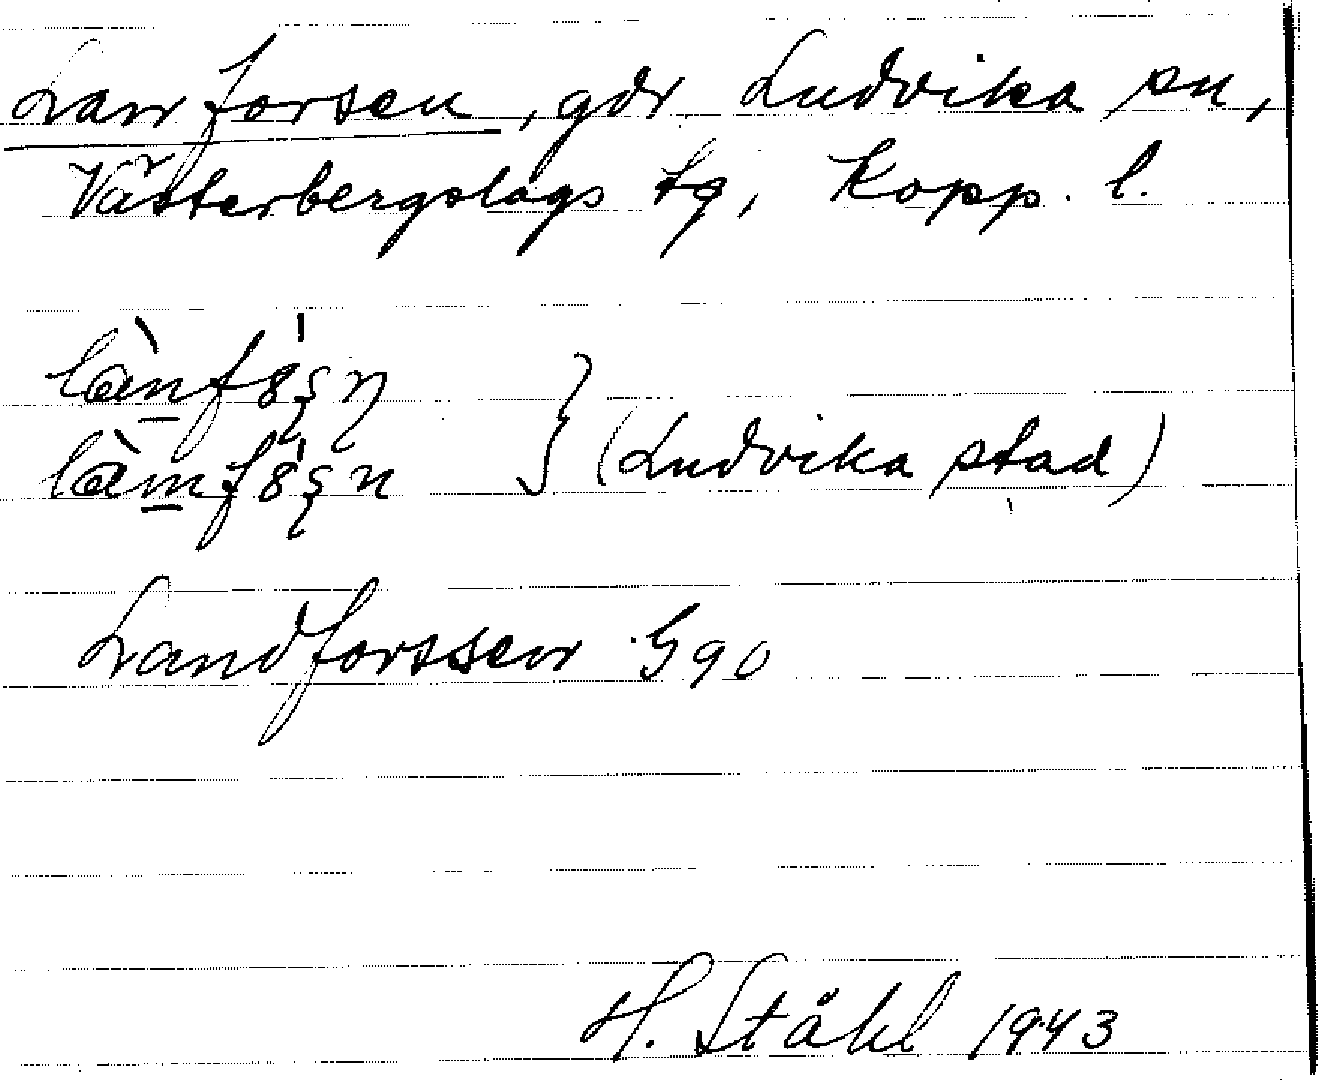 Lanforsen, gdr Ludvika sn,
Västerbergslags tg, Kopp. l.
lànfó̤ʂn } (Ludvika stad)
làmfó̤ʂn
Landforssen G90
H. Ståhl 1943